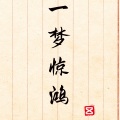 一梦惊鸿